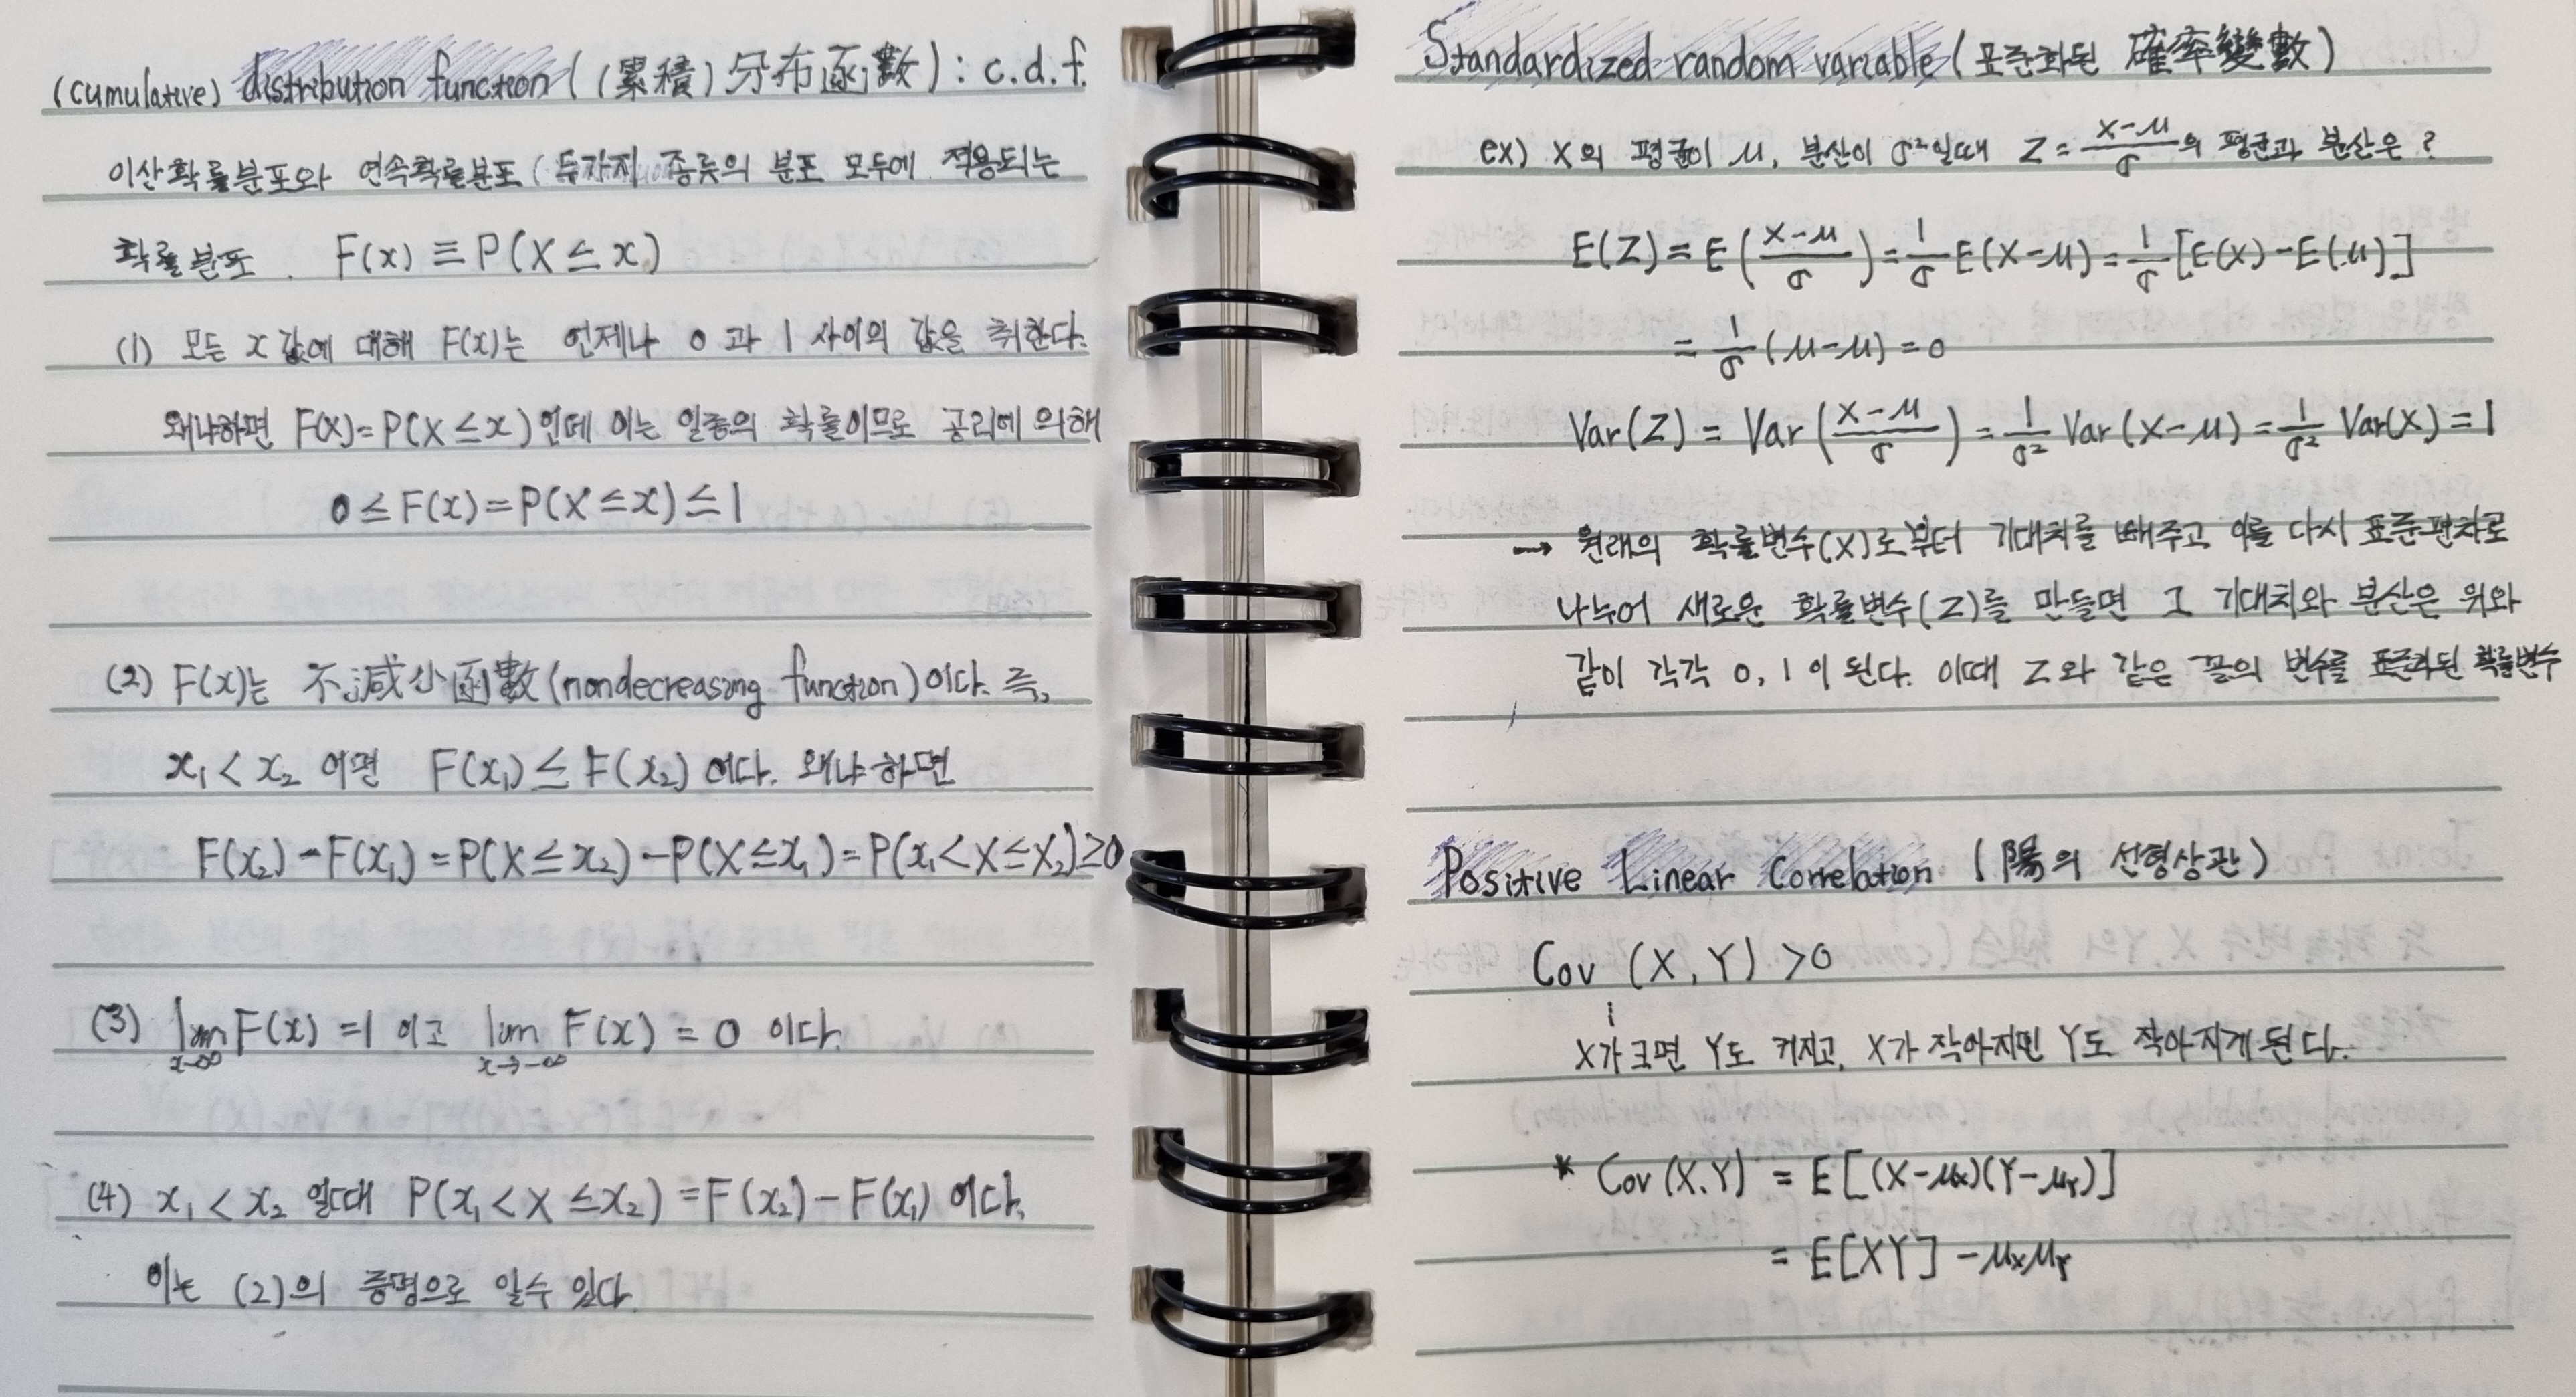 (cumulative) distribution function ((累積) 分布函數) : c.d.f.
이산확률분포와 연속확률분포 (두가지 종류의 분포 모두에 적용되는
확률분포. F(x) ≡ P(X ≤ x)
(1) 모든 x 값에 대해 F(x)는 언제나 0 과 1 사이의 값을 취한다.
왜냐하면 F(x) = P(X ≤ x) 인데 이는 일종의 확률이므로 공리에 의해
0 ≤ F(x) = P(X ≤ x) ≤ 1
(2) F(x)는 不減少函數 (nondecreasing function) 이다. 즉,
x₁ < x₂ 이면 F(x₁) ≤ F(x₂) 이다. 왜냐하면
F(x₂) - F(x₁) = P(X ≤ x₂) - P(X ≤ x₁) = P(x₁ < X ≤ X₂) ≥ 0
(3) lim x→∞ F(x) = 1 이고 lim x→-∞ F(x) = 0 이다.
(4) x₁ < x₂ 일때 P(x₁ < X ≤ x₂) = F(x₂) - F(x₁) 이다.
이는 (2)의 증명으로 알수 있다.
Standardized random variable (표준화된 確率變數)
ex) X의 평균이 μ, 분산이 σ²일때 Z = (X-μ)/σ 의 평균과 분산은?
E(Z) = E((X-μ)/σ) = 1/σ E(X-μ) = 1/σ [E(X) - E(μ)]
= 1/σ (μ-μ) = 0
Var(Z) = Var((X-μ)/σ) = 1/σ² Var(X-μ) = 1/σ² Var(X) = 1
→ 원래의 확률변수(X)로부터 기대치를 빼주고 이를 다시 표준편차로
나누어 새로운 확률변수(Z)를 만들면 그 기대치와 분산은 위와
같이 각각 0, 1 이 된다. 이때 Z와 같은 꼴의 변수를 표준화된 확률변수
Positive Linear Correlation (陽의 선형상관)
Cov (X, Y) > 0
X가 크면 Y도 커지고, X가 작아지면 Y도 작아지게 된다.
* Cov (X.Y) = E[(X-μx)(Y-μY)]
= E[XY] - μxμY